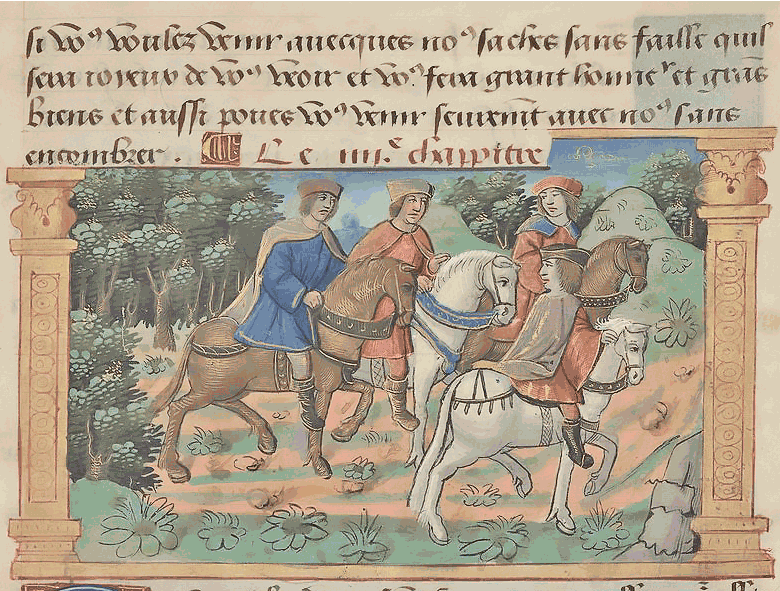 si voꝰ voulez venir auecques noꝰ saches sans faille quil
sera ioyeux de voꝰ veoir et voꝰ fera grant honneʳ et grās
biens et aussi poues voꝰ venir seuremēt auec noꝰ sans
encombrer .
Le iiiiᵉ chappitre